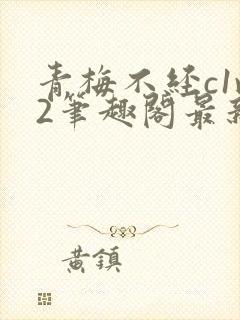 青梅不经c1v
2筆趣閣最新
黄鎮